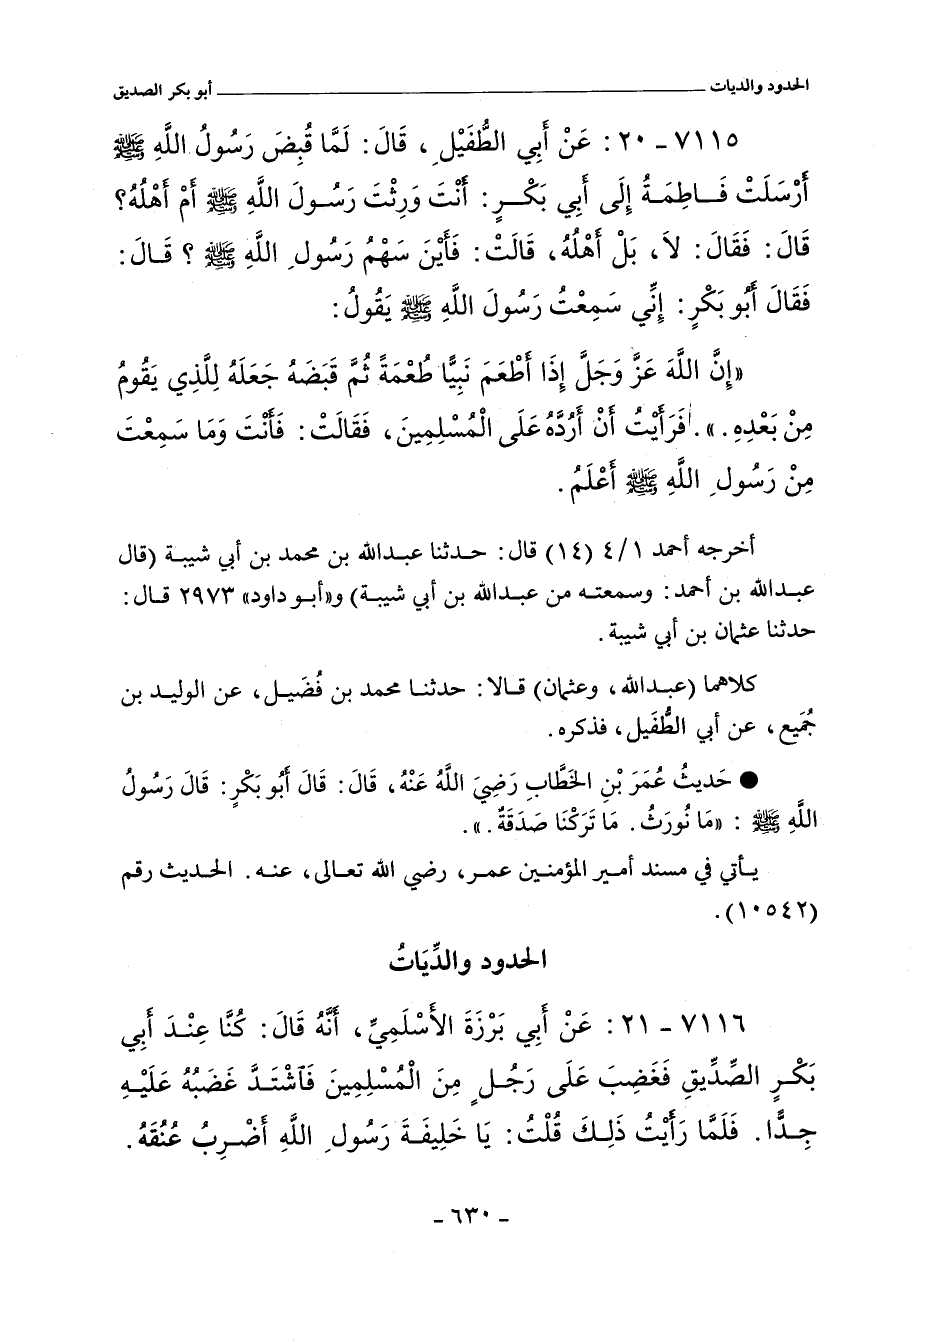 الحدود والديات ــــــــــــــــــــــــــــــــ أبو بكر الصديق
٧١١٥ - ٢٠ : عَنْ أَبِي الطُّفَيْلِ ، قَالَ : لَمَّا قُبِضَ رَسُولُ اللَّهِ ﷺ
أَرْسَلَتْ فَاطِمَةُ إِلَى أَبِي بَكْرٍ : أَنْتَ وَرِثْتَ رَسُولَ اللَّهِ ﷺ أَمْ أَهْلُهُ؟
قَالَ : فَقَالَ : لاَ ، بَلْ أَهْلُهُ ، قَالَتْ : فَأَيْنَ سَهْمُ رَسُولِ اللَّهِ ﷺ ؟ قَالَ :
فَقَالَ أَبُو بَكْرٍ : إِنِّي سَمِعْتُ رَسُولَ اللَّهِ ﷺ يَقُولُ :
«إِنَّ اللَّهَ عَزَّ وَجَلَّ إِذَا أَطْعَمَ نَبِيًّا طُعْمَةً ثُمَّ قَبَضَهُ جَعَلَهُ لِلَّذِي يَقُومُ
مِنْ بَعْدِهِ . » . فَرَأَيْتُ أَنْ أَرُدَّهُ عَلَى الْمُسْلِمِينَ ، فَقَالَتْ : فَأَنْتَ وَمَا سَمِعْتَ
مِنْ رَسُولِ اللَّهِ ﷺ أَعْلَمُ .
أخرجه أحمد ٤/١ (١٤) قال : حدثنا عبدالله بن محمد بن أبي شيبة (قال
عبدالله بن أحمد : وسمعته من عبدالله بن أبي شيبة) و«أبو داود» ٢٩٧٣ قال :
حدثنا عثمان بن أبي شيبة .
كلاهما (عبدالله ، وعثمان) قالا : حدثنا محمد بن فُضَيل ، عن الوليد بن
جُمَيع ، عن أبي الطُّفَيل ، فذكره .
● حَدِيثُ عُمَرَ بْنِ الخَطَّابِ رَضِيَ اللَّهُ عَنْهُ ، قَالَ : قَالَ أَبُو بَكْرٍ : قَالَ رَسُولُ
اللَّهِ ﷺ : «مَا نُورَثُ . مَا تَرَكْنَا صَدَقَةٌ . » .
يأتي في مسند أمير المؤمنين عمر ، رضي الله تعالى ، عنه . الحديث رقم
(١٠٥٤٢) .
الحدود والدِّيَاتُ
٧١١٦ - ٢١ : عَنْ أَبِي بَرْزَةَ الأَسْلَمِيِّ ، أَنَّهُ قَالَ : كُنَّا عِنْدَ أَبِي
بَكْرٍ الصِّدِّيقِ فَغَضِبَ عَلَى رَجُلٍ مِنَ الْمُسْلِمِينَ فَاشْتَدَّ غَضَبُهُ عَلَيْهِ
جِدًّا . فَلَمَّا رَأَيْتُ ذَلِكَ قُلْتُ : يَا خَلِيفَةَ رَسُولِ اللَّهِ أَضْرِبُ عُنُقَهُ .
- ٦٣٠ -